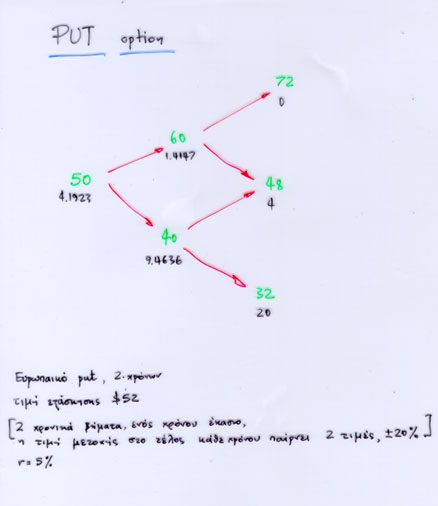 PUT option
72
0
60
1.4147
50
4.1923
48
4
40
9.4636
32
20
Ευρωπαικό put, 2 χρόνων
τιμή εξάσκησης $52
[2 χρονικά βήματα, ενός χρόνου έκαστο,
η τιμή μετοχής στο τέλος κάθε χρόνου παίρνει 2 τιμές, ±20%]
r = 5%